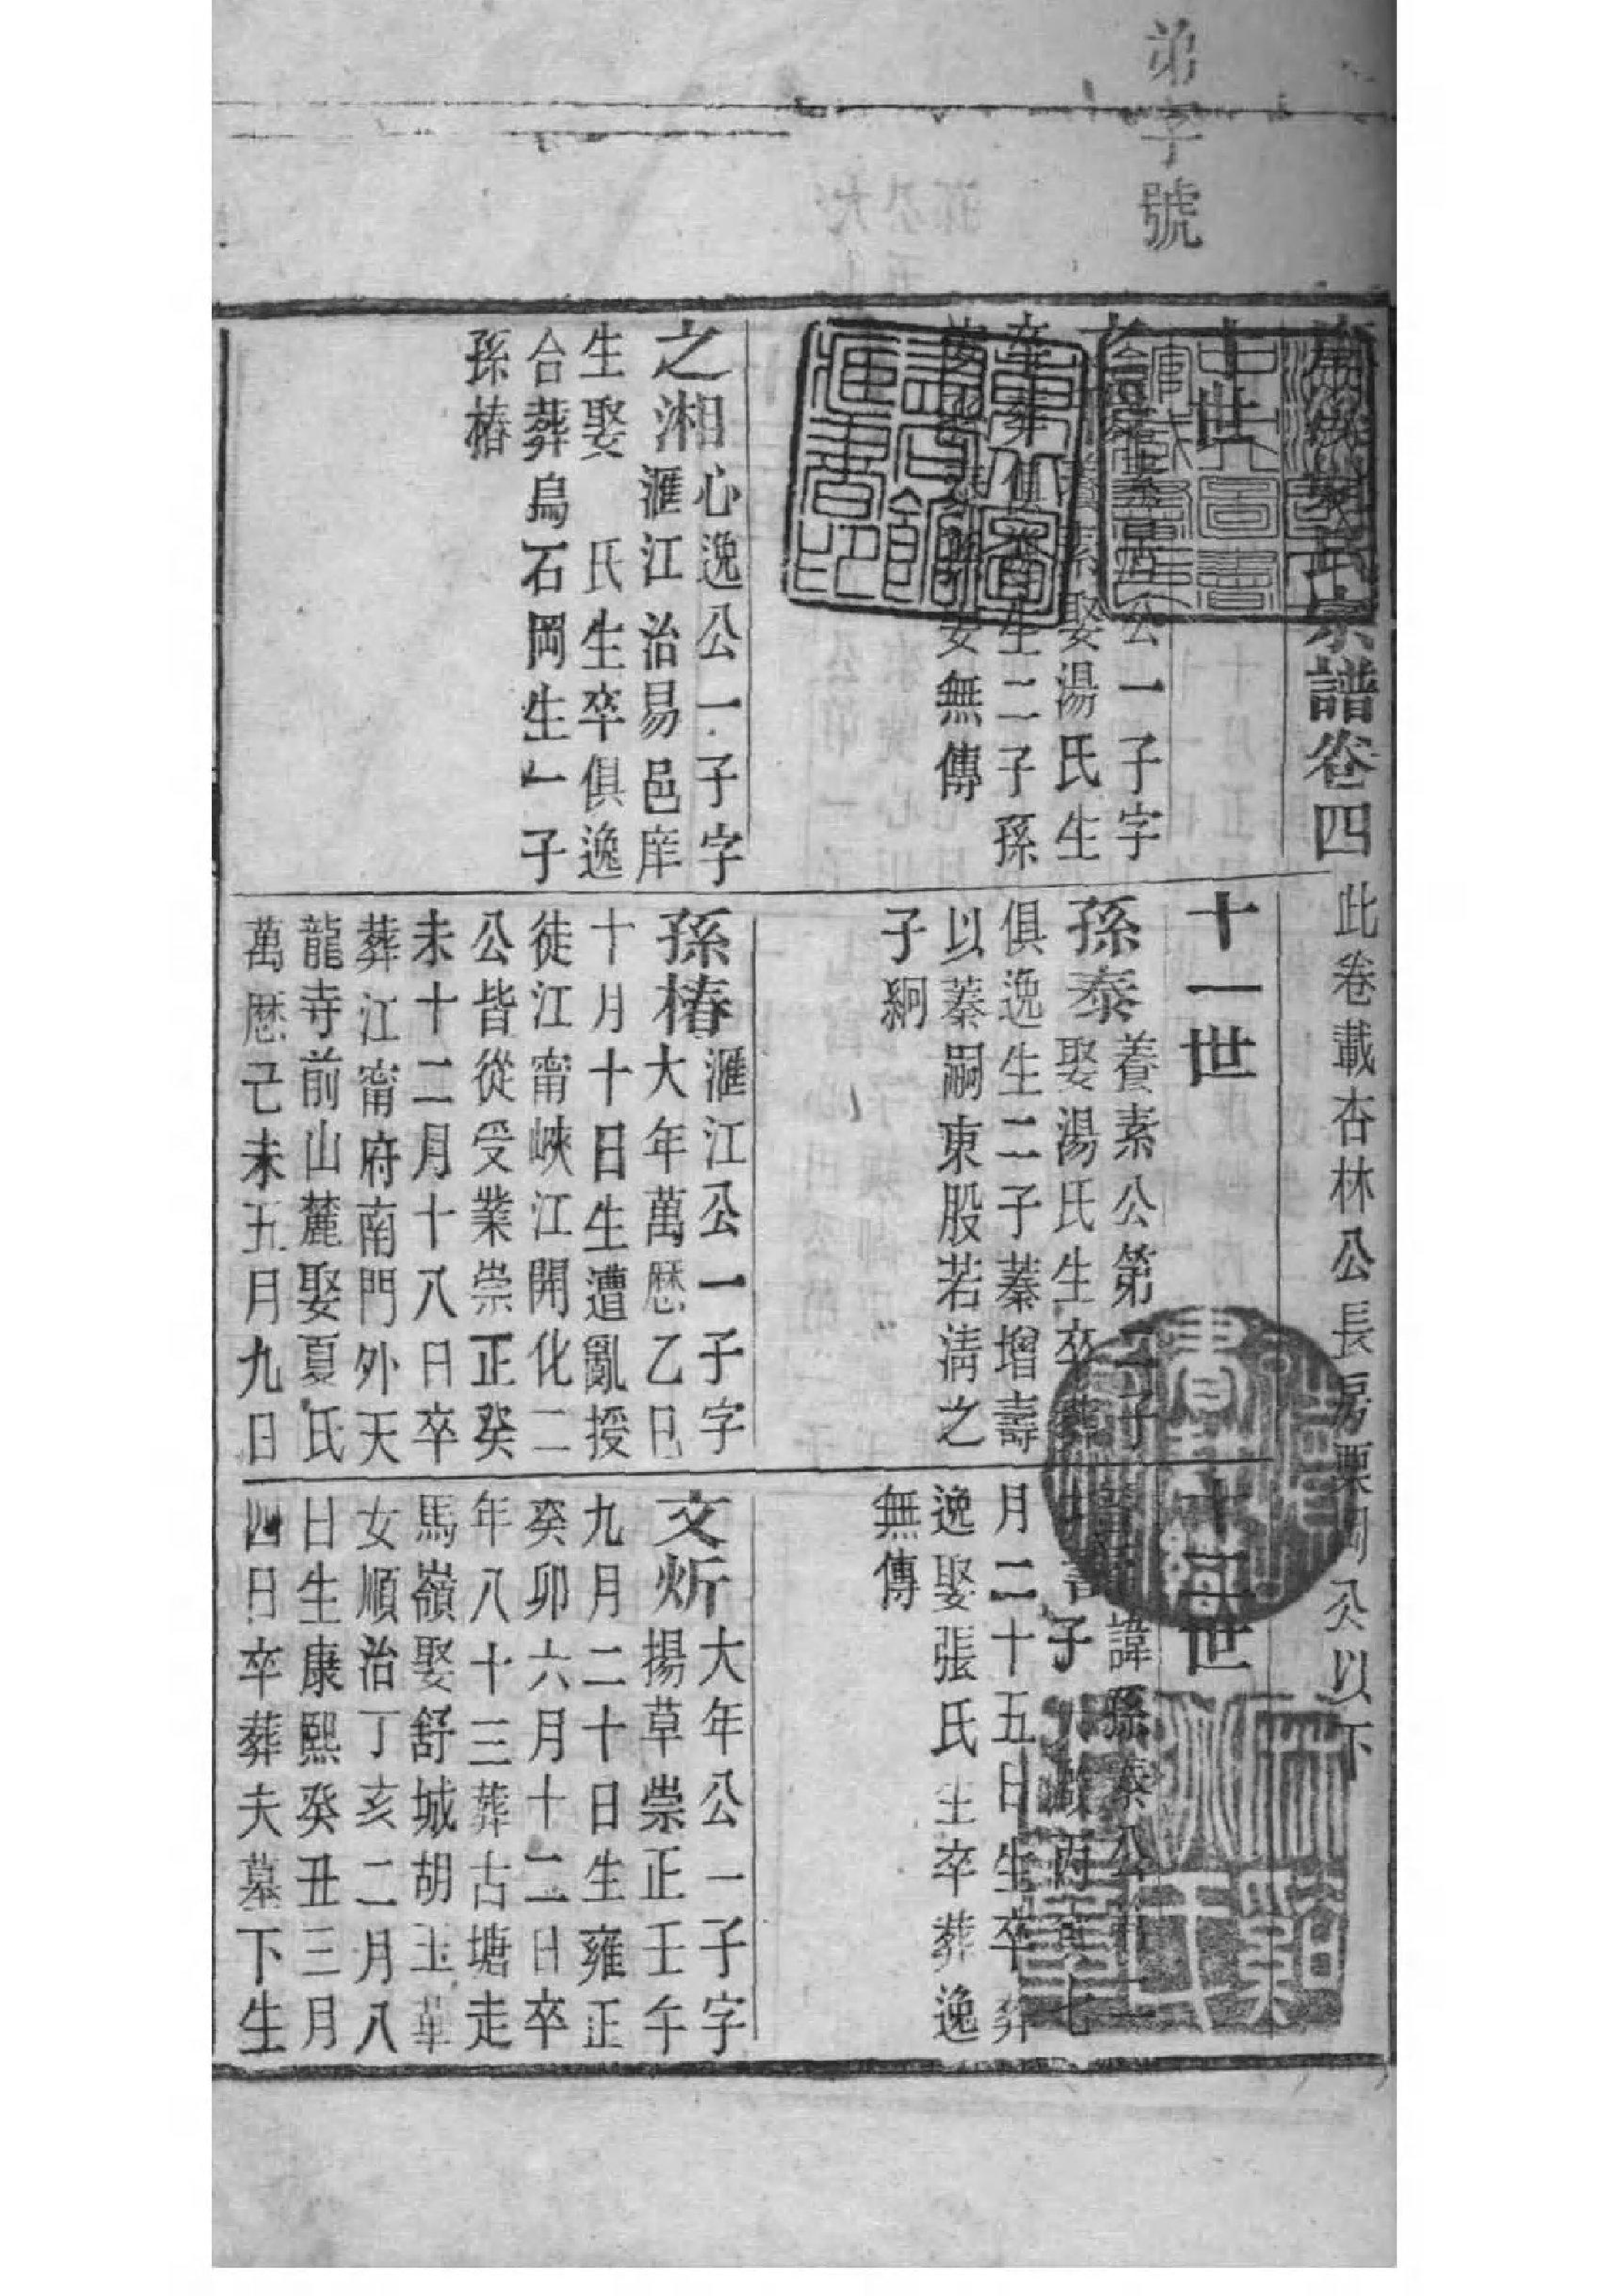 弟子號
氏宗譜卷四 此卷載杏林公長房栗岡公以下
十世
公一子字
娶湯氏生
生二子孫
女無傳
之湘心逸公一子字
滙江治易邑庠
生娶 氏生卒俱逸
合葬烏石岡生一子
孫椿
十一世
孫泰養素公第二子
娶湯氏生卒葬
俱逸生二子蓁增壽
以蓁嗣東股若淸之
子絅
孫椿滙江公一子字
大年萬厯乙巳
十月十日生遭亂授
徒江甯峽江開化二
公皆從受業崇正癸
未十二月十八日卒
葬江甯府南門外天
龍寺前山麓娶夏氏
萬厯己未五月九日
十二世
諱孫泰公
子
月二十五日生卒葬
逸娶張氏生卒葬逸
無傳
文炘大年公一子字
揚草崇正壬午
九月二十日生雍正
癸卯六月十二日卒
年八十三葬古塘走
馬嶺娶舒城胡玉華
女順治丁亥二月八
日生康熙癸丑三月
四日卒葬夫墓下生